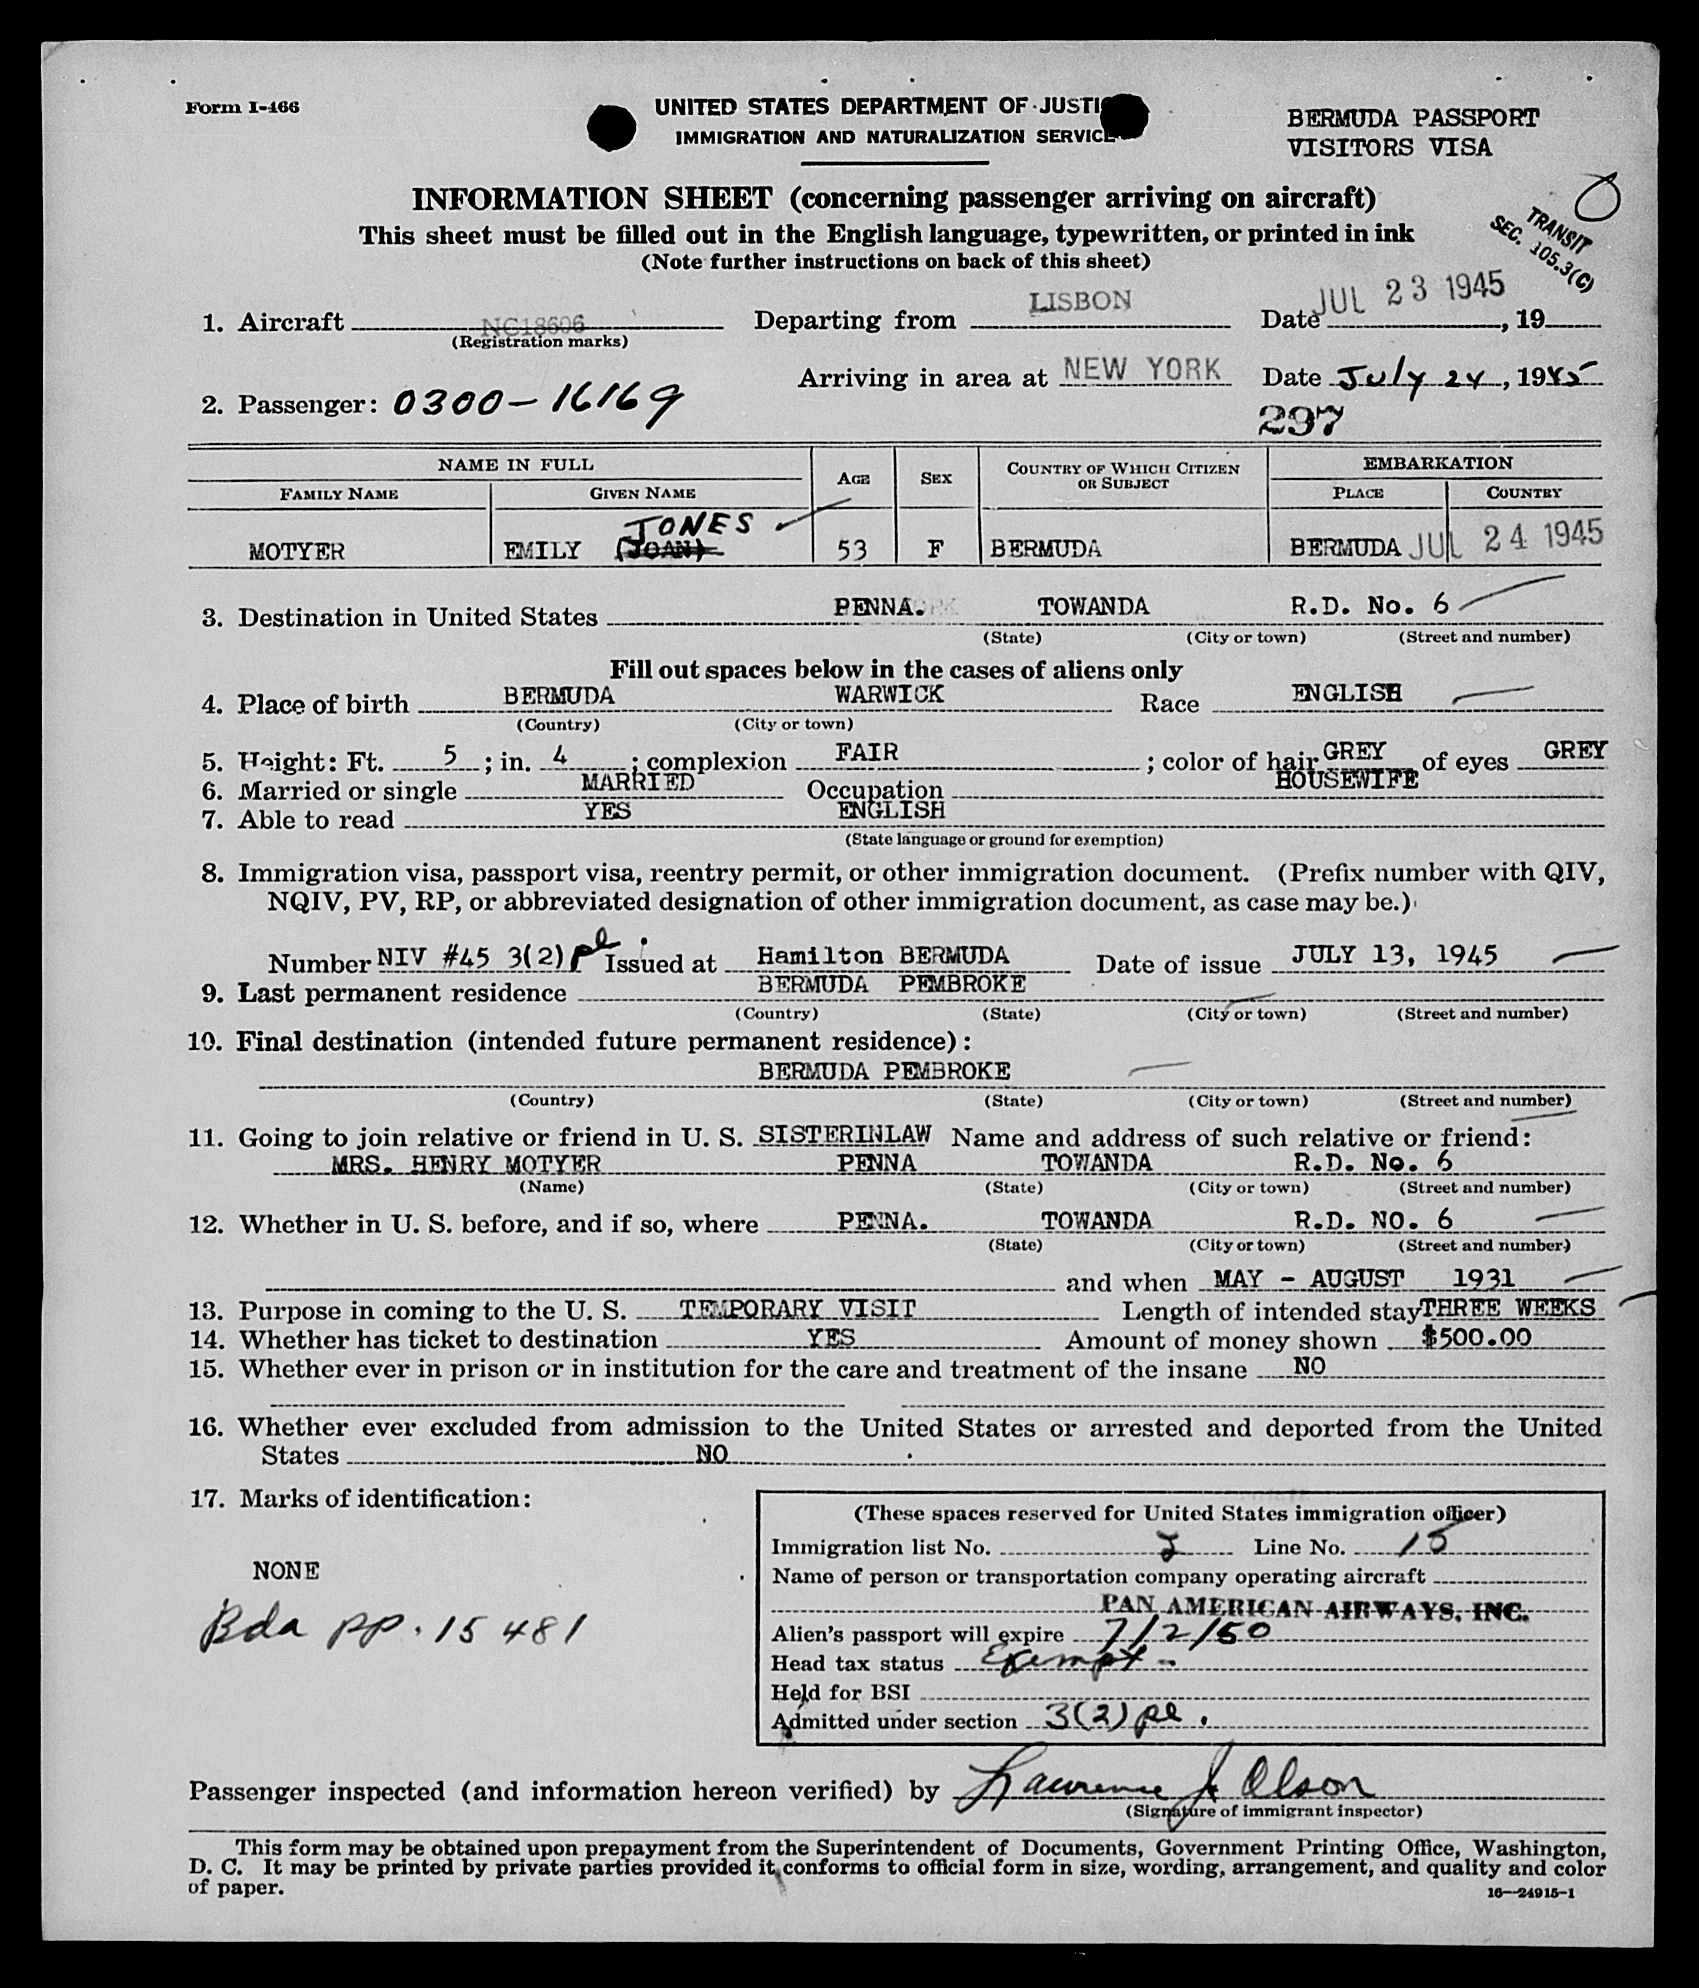 Form I-466
UNITED STATES DEPARTMENT OF JUSTI
IMMIGRATION AND NATURALIZATION SERVICE
BERMUDA PASSPORT
VISITORS VISA
INFORMATION SHEET (concerning passenger arriving on aircraft)
This sheet must be filled out in the English language, typewritten, or printed in ink
(Note further instructions on back of this sheet)
TRANSIT
SEC. 105.3(C)
1. Aircraft NC18606 Departing from LISBON Date JUL 23 1945, 19
(Registration marks)
Arriving in area at NEW YORK Date July 24, 1945
2. Passenger: 0300-16169
297
NAME IN FULL AGE SEX COUNTRY OF WHICH CITIZEN OR SUBJECT EMBARKATION
FAMILY NAME GIVEN NAME PLACE COUNTRY
JONES
MOTYER EMILY (JOAN) 53 F BERMUDA BERMUDA JUL 24 1945
3. Destination in United States PENNA. TOWANDA R.D. No. 6
(State) (City or town) (Street and number)
Fill out spaces below in the cases of aliens only
4. Place of birth BERMUDA WARWICK Race ENGLISH
(Country) (City or town)
5. Height: Ft. 5; in. 4; complexion FAIR; color of hair GREY of eyes GREY
6. Married or single MARRIED Occupation HOUSEWIFE
7. Able to read YES ENGLISH
(State language or ground for exemption)
8. Immigration visa, passport visa, reentry permit, or other immigration document. (Prefix number with QIV,
NQIV, PV, RP, or abbreviated designation of other immigration document, as case may be.)
Number NIV #45 3(2) pl. Issued at Hamilton BERMUDA Date of issue JULY 13, 1945
9. Last permanent residence BERMUDA PEMBROKE
(Country) (State) (City or town) (Street and number)
10. Final destination (intended future permanent residence):
BERMUDA PEMBROKE
(Country) (State) (City or town) (Street and number)
11. Going to join relative or friend in U. S. SISTERINLAW Name and address of such relative or friend:
MRS. HENRY MOTYER PENNA TOWANDA R.D. No. 6
(Name) (State) (City or town) (Street and number)
12. Whether in U. S. before, and if so, where PENNA. TOWANDA R.D. NO. 6
(State) (City or town) (Street and number)
and when MAY - AUGUST 1931
13. Purpose in coming to the U. S. TEMPORARY VISIT Length of intended stay THREE WEEKS
14. Whether has ticket to destination YES Amount of money shown $500.00
15. Whether ever in prison or in institution for the care and treatment of the insane NO
16. Whether ever excluded from admission to the United States or arrested and deported from the United
States NO
17. Marks of identification:
NONE
Bda pp. 15481
(These spaces reserved for United States immigration officer)
Immigration list No. 2 Line No. 15
Name of person or transportation company operating aircraft
PAN AMERICAN AIRWAYS, INC.
Alien's passport will expire 7/2/50
Head tax status Exempt
Held for BSI
Admitted under section 3(2) pl.
Passenger inspected (and information hereon verified) by Lawrence J Olson
(Signature of immigrant inspector)
This form may be obtained upon prepayment from the Superintendent of Documents, Government Printing Office, Washington,
D. C. It may be printed by private parties provided it conforms to official form in size, wording, arrangement, and quality and color
of paper.
16—24915-1